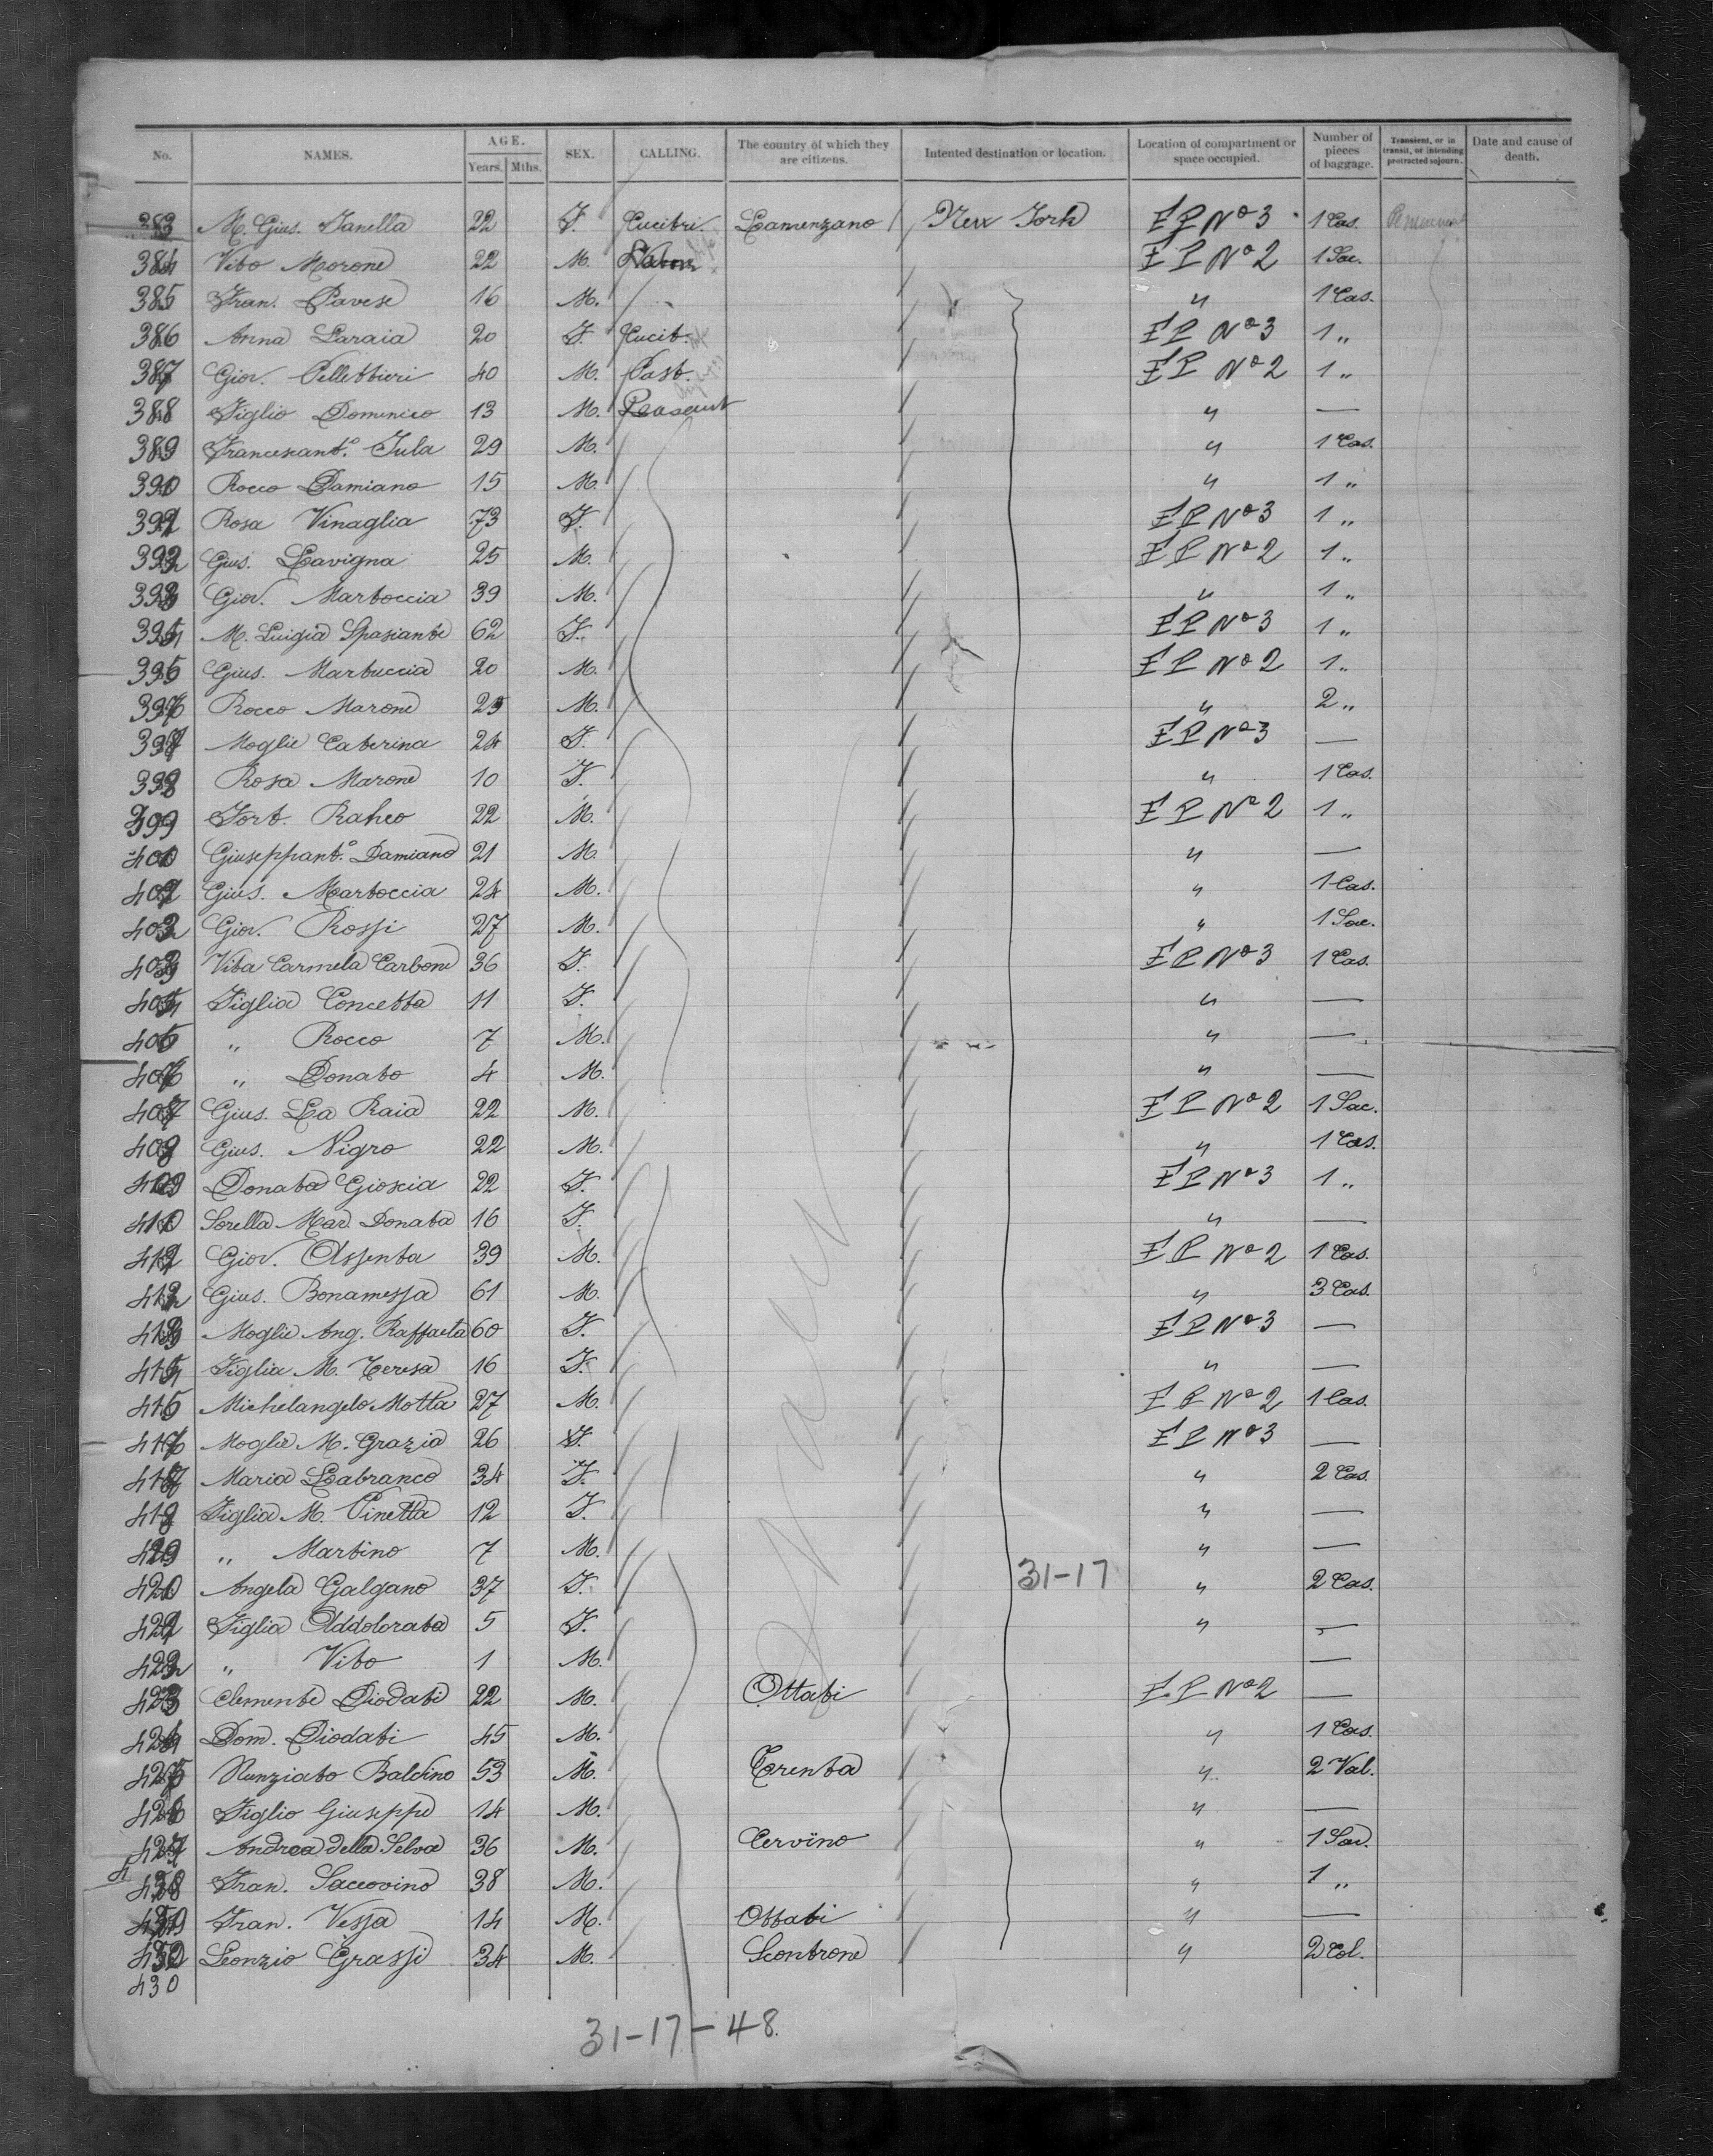 No. NAMES. AGE. Years. Mths. SEX. CALLING. The country of which they are citizens. Intented destination or location. Location of compartment or space occupied. Number of pieces of baggage. Transient, or in transit, or intending protracted sojourn. Date and cause of death.
383 M. Gius. Janella 22 F. Cucitri. Lamenzano New York E P No 3 1 Cas.
384 Vito Morone 22 M. E P No 2 1 Sac.
385 Fran. Pavese 16 M. " 1 Cas.
386 Anna Laraia 20 F. Cucit. E P No 3 1 "
387 Giov. Pellettieri 40 M. Past. E P No 2 1 "
388 Figlio Domenico 13 M. Peasant " —
389 Francescant.o Iula 29 M. " 1 Cas.
390 Rocco Damiano 15 M. " 1 "
391 Rosa Vinaglia 73 F. E P No 3 1 "
392 Gius. Lavigna 25 M. E P No 2 1 "
393 Giov. Martoccia 39 M. " 1 "
394 M. Luigia Spasiante 62 F. E P No 3 1 "
395 Gius. Martuccia 20 M. E P No 2 1 "
396 Rocco Marone 25 M. " 2 "
397 Moglie Caterina 24 F. E P No 3 —
398 Rosa Marone 10 F. " 1 Cas.
399 Fort. Raheo 22 M. E P No 2 1 "
400 Giuseppant.o Damiano 21 M. " —
401 Gius. Martoccia 24 M. " 1 Cas.
402 Giov. Rossi 27 M. " 1 Sac.
403 Vita Carmela Carbone 36 F. E P No 3 1 Cas.
404 Figlia Concetta 11 F. " —
405 " Rocco 7 M. " —
406 " Donato 4 M. " —
407 Gius. La Raia 22 M. E P No 2 1 Sac.
408 Gius. Nigro 22 M. " 1 Cas.
409 Donata Gioscia 22 F. E P No 3 1 "
410 Sorella Mar. Donata 16 F. " —
411 Giov. Assenta 39 M. E P No 2 1 Cas.
412 Gius. Bonamessa 61 M. " 3 Cas.
413 Moglie Ang. Raffaela 60 F. E P No 3 —
414 Figlia M. Teresa 16 F. " —
415 Michelangelo Motta 27 M. E P No 2 1 Cas.
416 Moglie M. Grazia 26 F. E P No 3 —
417 Maria Labranco 34 F. " 2 Cas.
418 Figlia M. Pinetta 12 F. " —
419 " Martino 7 M. " —
420 Angela Galgano 37 F. 31-17 " 2 Cas.
421 Figlia Addolorata 5 F. " —
422 " Vito 1 M. —
423 Clemente Diodati 22 M. Ottati E P No 2 —
424 Dom. Diodati 45 M. " 1 Cas.
425 Nunziato Baldino 53 M. Trenta " 2 Val.
426 Figlio Giuseppe 14 M. " —
427 Andrea della Selva 36 M. Cervino " 1 Sac.
428 Fran. Saccovino 38 M. " 1 "
429 Fran. Vessa 14 M. Ottati " —
430 Leonzio Grassi 34 M. Scontrone " 2 Col.
430
31-17-48.